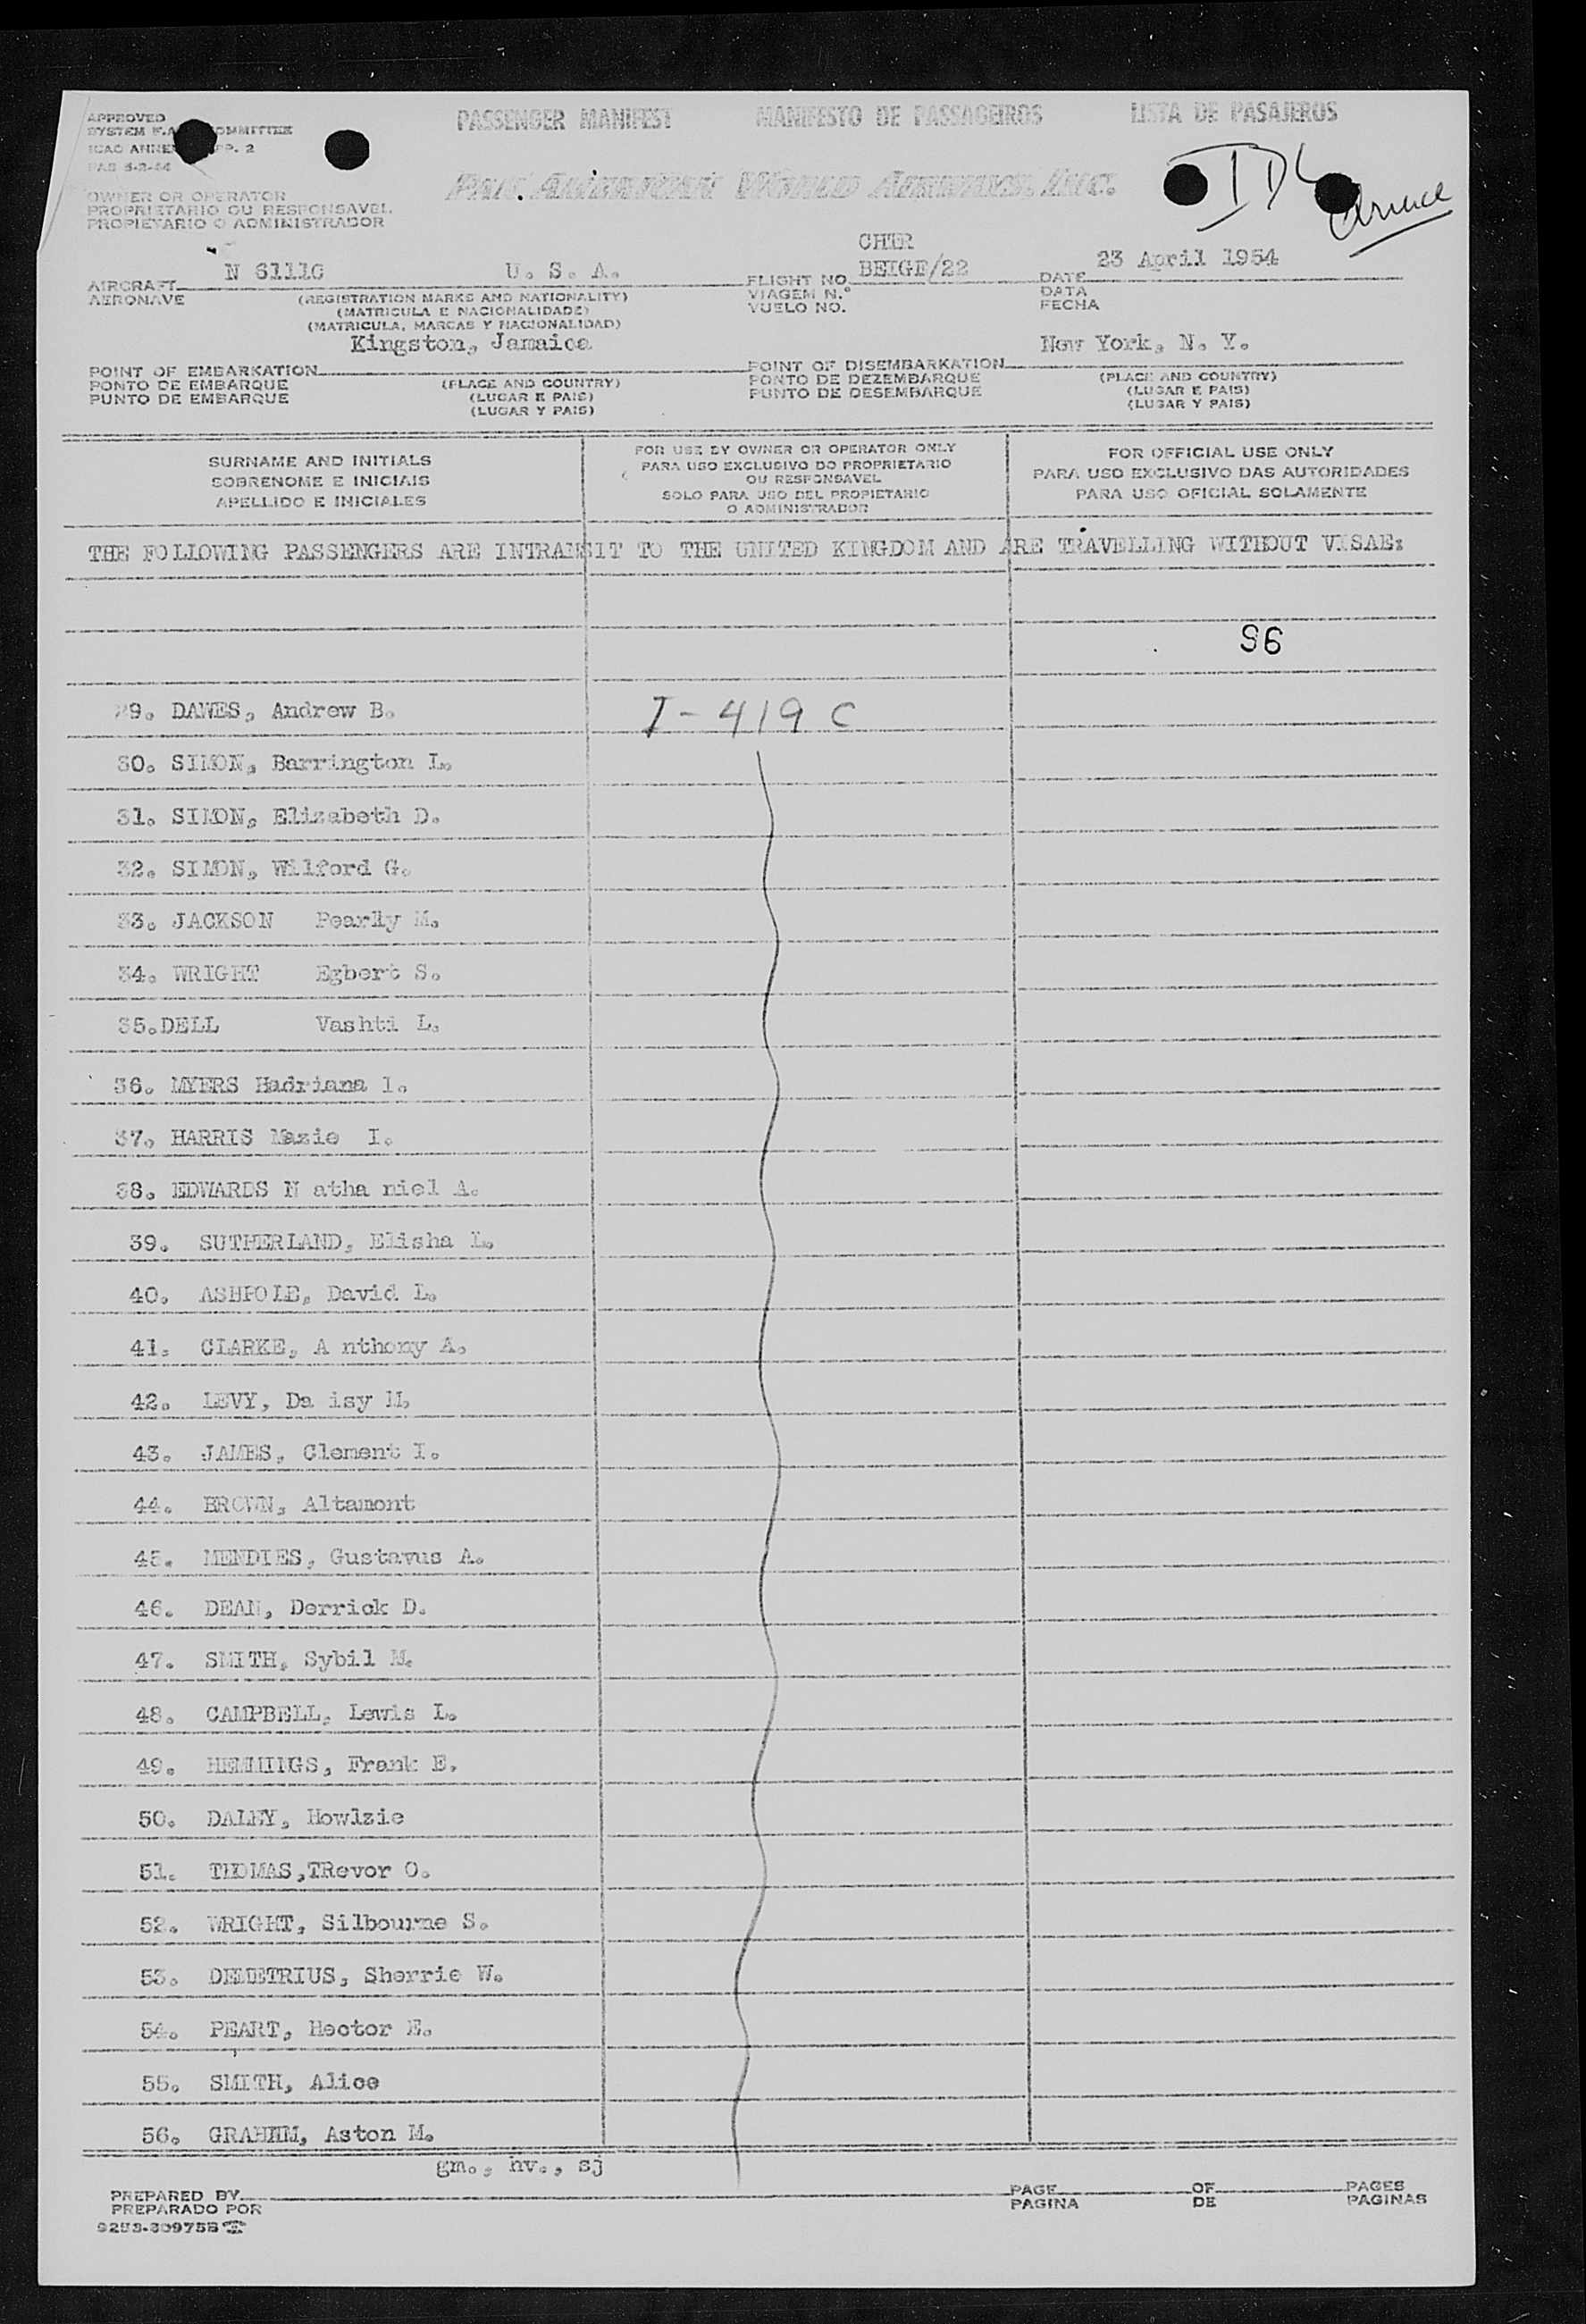 APPROVED
SYSTEM F.A. COMMITTEE
ICAO ANNEX PP. 2
PASSENGER MANIFEST MANIFESTO DE PASSAGEIROS LISTA DE PASAJEROS
PAN AMERICAN WORLD AIRWAYS, INC.
OWNER OR OPERATOR
PROPRIETARIO OU RESPONSAVEL
PROPIETARIO O ADMINISTRADOR
CHTR
AIRCRAFT N 6111C U. S. A. FLIGHT NO. BEIGE/22 DATE 23 April 1954
AERONAVE (REGISTRATION MARKS AND NATIONALITY) VIAGEM N.º DATA
(MATRICULA E NACIONALIDADE) VUELO NO. FECHA
(MATRICULA, MARCAS Y NACIONALIDAD)
Kingston, Jamaica New York, N. Y.
POINT OF EMBARKATION POINT OF DISEMBARKATION
PONTO DE EMBARQUE (PLACE AND COUNTRY) PONTO DE DEZEMBARQUE (PLACE AND COUNTRY)
PUNTO DE EMBARQUE (LUGAR E PAIS) PUNTO DE DESEMBARQUE (LUGAR E PAIS)
(LUGAR Y PAIS) (LUGAR Y PAIS)
SURNAME AND INITIALS
SOBRENOME E INICIAIS
APELLIDO E INICIALES
FOR USE BY OWNER OR OPERATOR ONLY
PARA USO EXCLUSIVO DO PROPRIETARIO
OU RESPONSAVEL
SOLO PARA USO DEL PROPIETARIO
O ADMINISTRADOR
FOR OFFICIAL USE ONLY
PARA USO EXCLUSIVO DAS AUTORIDADES
PARA USO OFICIAL SOLAMENTE
THE FOLLOWING PASSENGERS ARE INTRANSIT TO THE UNITED KINGDOM AND ARE TRAVELLING WITHOUT VISAE:
96
29. DAWES, Andrew B. I-419 C
30. SIMON, Barrington L.
31. SIMON, Elizabeth D.
32. SIMON, Wilford G.
33. JACKSON Pearly M.
34. WRIGHT Egbert S.
35.DELL Vashti L.
36. MYERS Hadriana I.
37. HARRIS Mazie I.
38. EDWARDS N atha niel A.
39. SUTHERLAND, Elisha L.
40. ASHPOLE, David L.
41. CLARKE, A nthony A.
42. LEVY, Da isy M.
43. JAMES, Clement I.
44. BROWN, Altamont
45. MENDIES, Gustavus A.
46. DEAN, Derrick D.
47. SMITH, Sybil M.
48. CAMPBELL, Lewis L.
49. HEMMINGS, Frank E.
50. DALEY, Howlzie
51. THOMAS,TRevor O.
52. WRIGHT, Silbourne S.
53. DEMETRIUS, Sherrie W.
54. PEART, Hector E.
55. SMITH, Alice
56. GRAHAM, Aston M.
gm., hv., sj
PREPARED BY PAGE OF PAGES
PREPARADO POR PAGINA DE PAGINAS